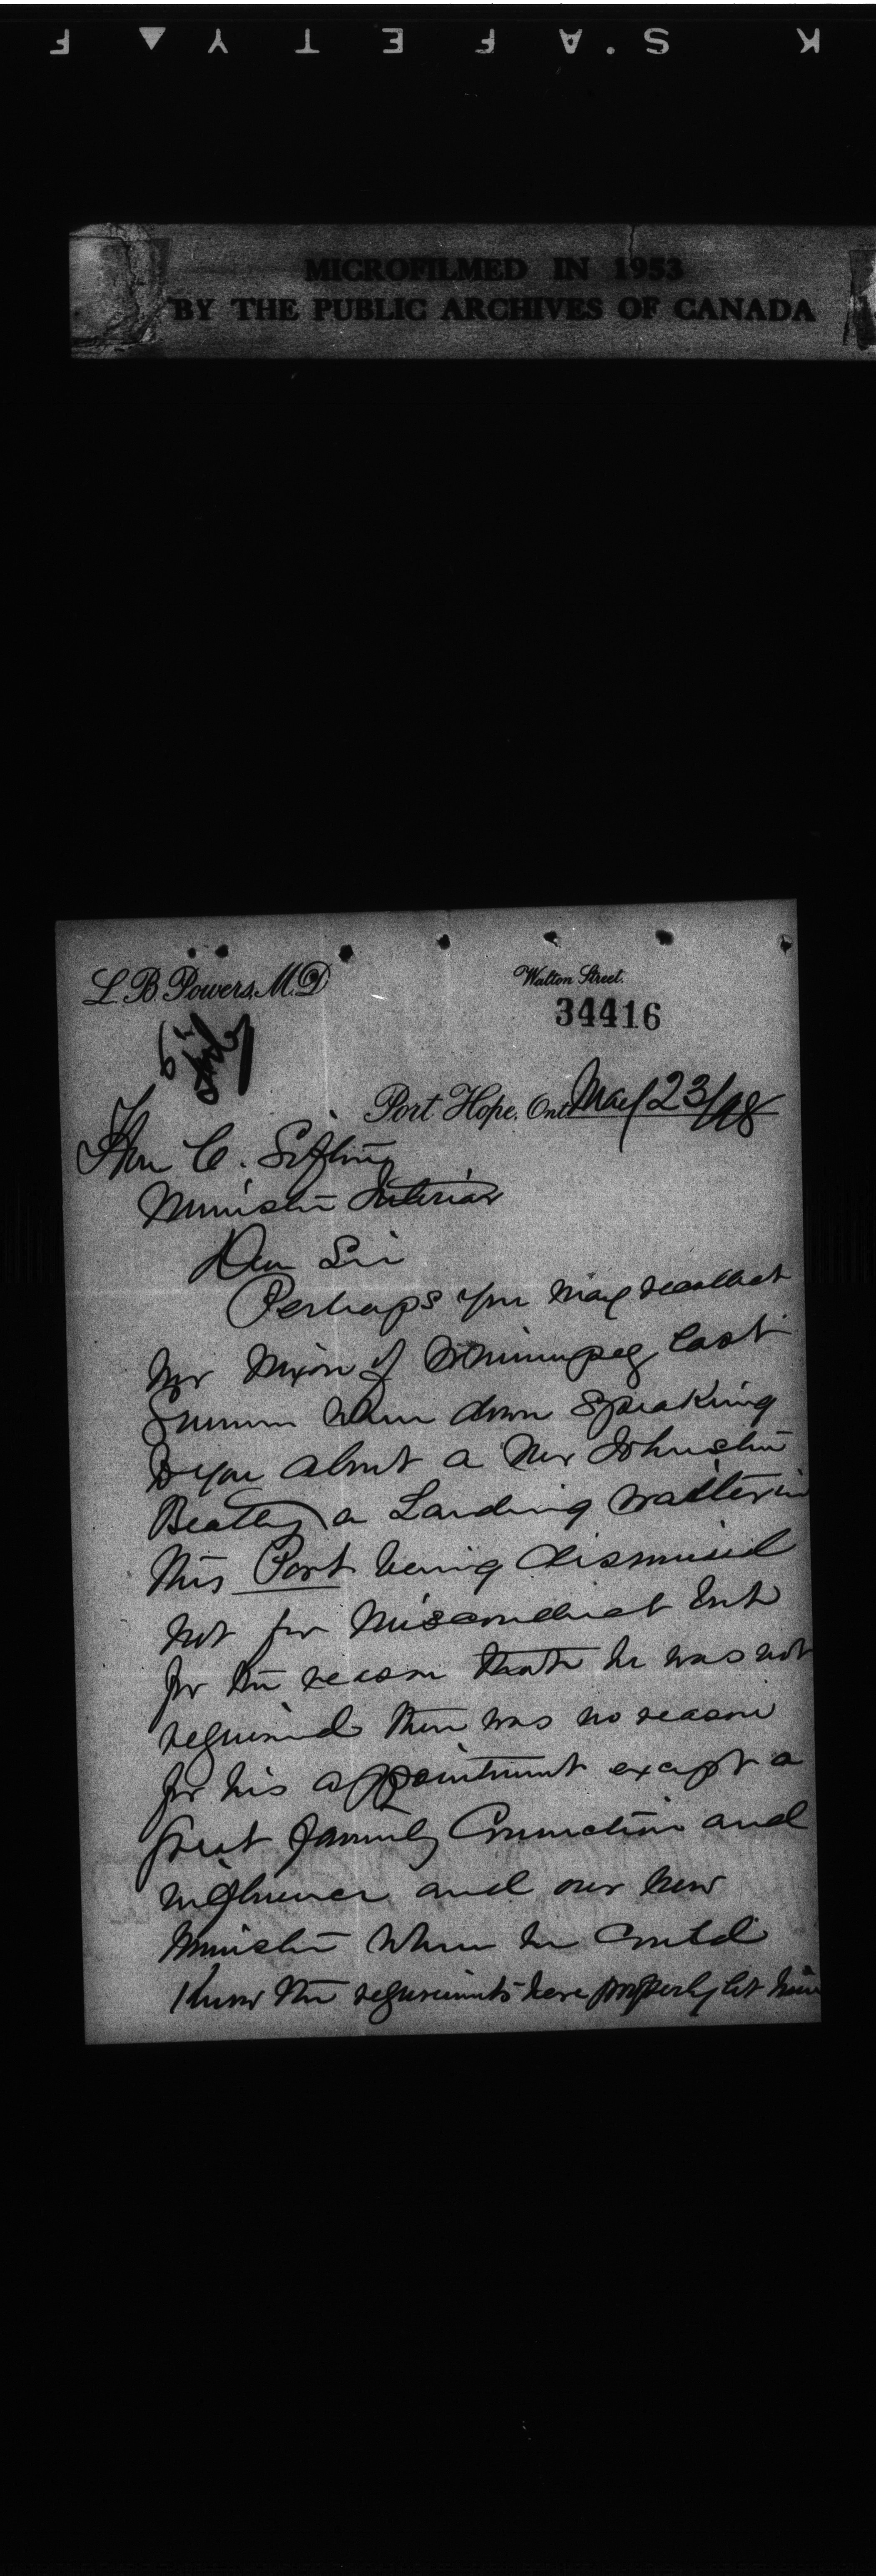 K S'A F E T Y ▲ F
MICROFILMED IN 1953
BY THE PUBLIC ARCHIVES OF CANADA
L. B. Powers, M.D.
Walton Street.
34416
Port Hope, Ont. May 23/98
Hon C. Sifton
Minister Interior
Dear Sir
Perhaps you may recollect
Mr Nixon of Winnipeg last
Summer when down speaking
to you about a Mr Johnston
Beatty a Landing waiter in
this Port being dismissed
not for misconduct but
for the reason that he was not
required there was no reason
for his appointment except a
great family Connection and
influence and our new
Minister when he could
Know the requirements here properly let him